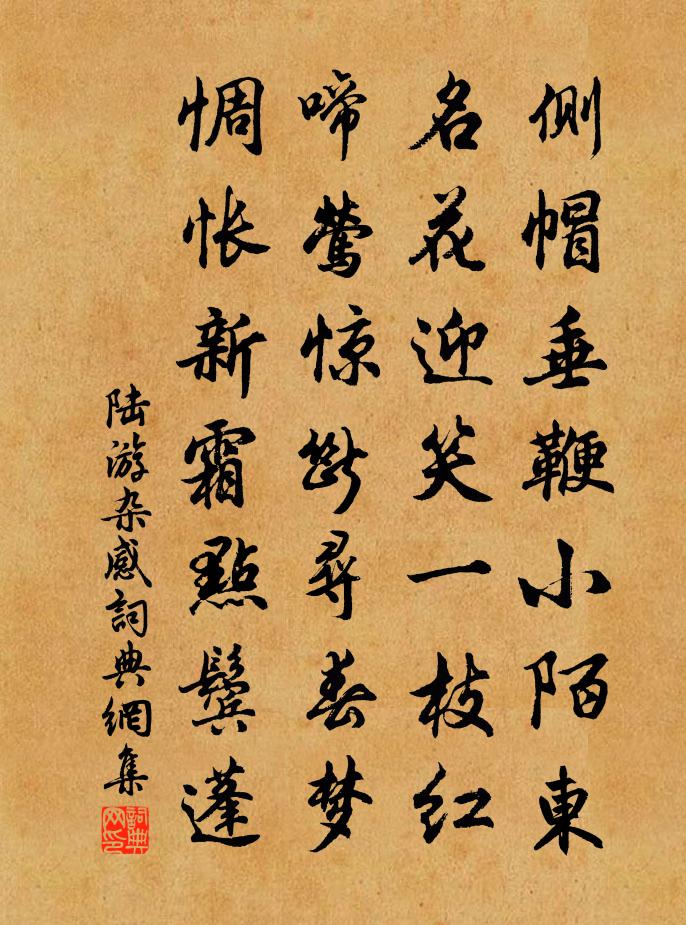 侧帽垂鞭小陌東
名花迎笑一枝红
啼莺惊斷尋春梦
惆怅新霜點鬓蓬
陆游杂感詞典網集
詞典网印